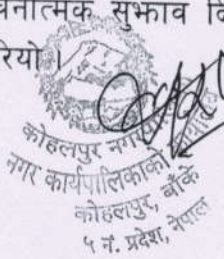 चनात्मक सुझाव दि
रियो।
कोहलपुर नगरपालिका
नगर कार्यपालिकाको
कोहलपुर, बाँके
५ नं. प्रदेश, नेपाल